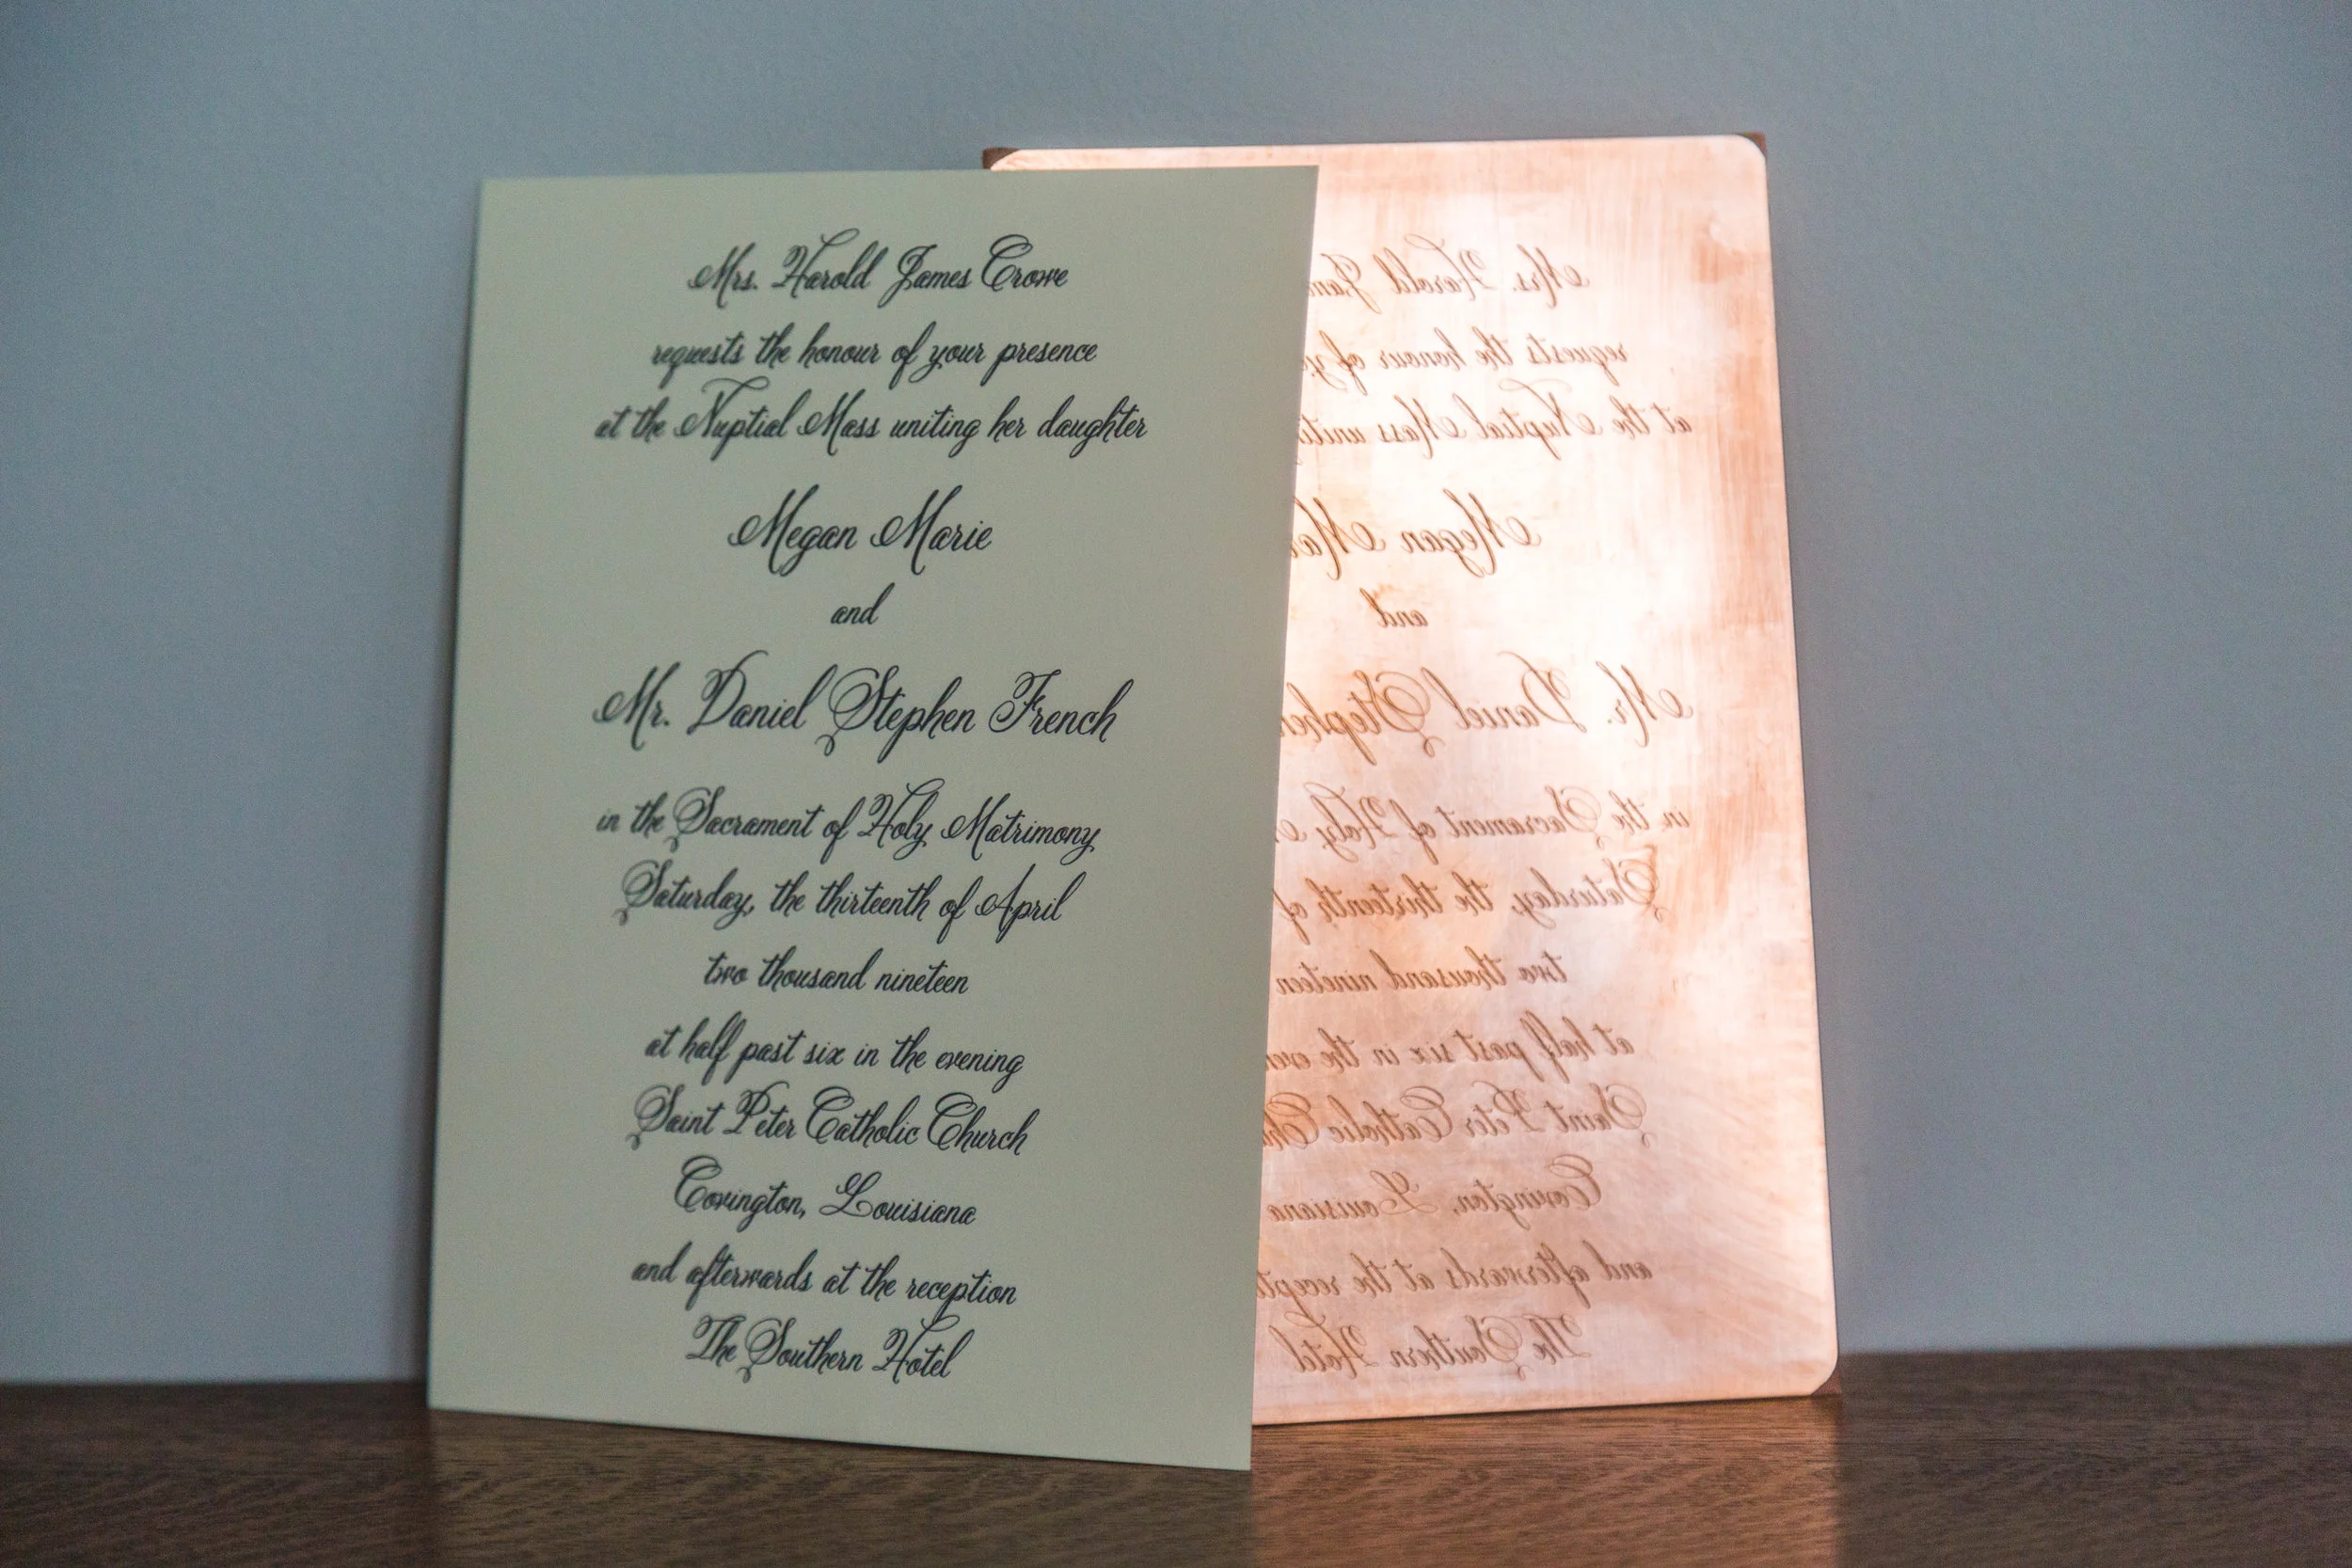 Mrs. Harold James Crowe
requests the honour of your presence
at the Nuptial Mass uniting her daughter
Megan Marie
and
Mr. Daniel Stephen French
in the Sacrament of Holy Matrimony
Saturday, the thirteenth of April
two thousand nineteen
at half past six in the evening
Saint Peter Catholic Church
Covington, Louisiana
and afterwards at the reception
The Southern Hotel
Mrs. Harold
requests the honour of
at the Nuptial Mass
Megan
and
Mr. Daniel Stephen
in the Sacrament of Holy
Saturday, the thirteenth of
two thousand nineteen
at half past six in the
Saint Peter Catholic
Covington, Louisiana
and afterwards at the
The Southern Hotel